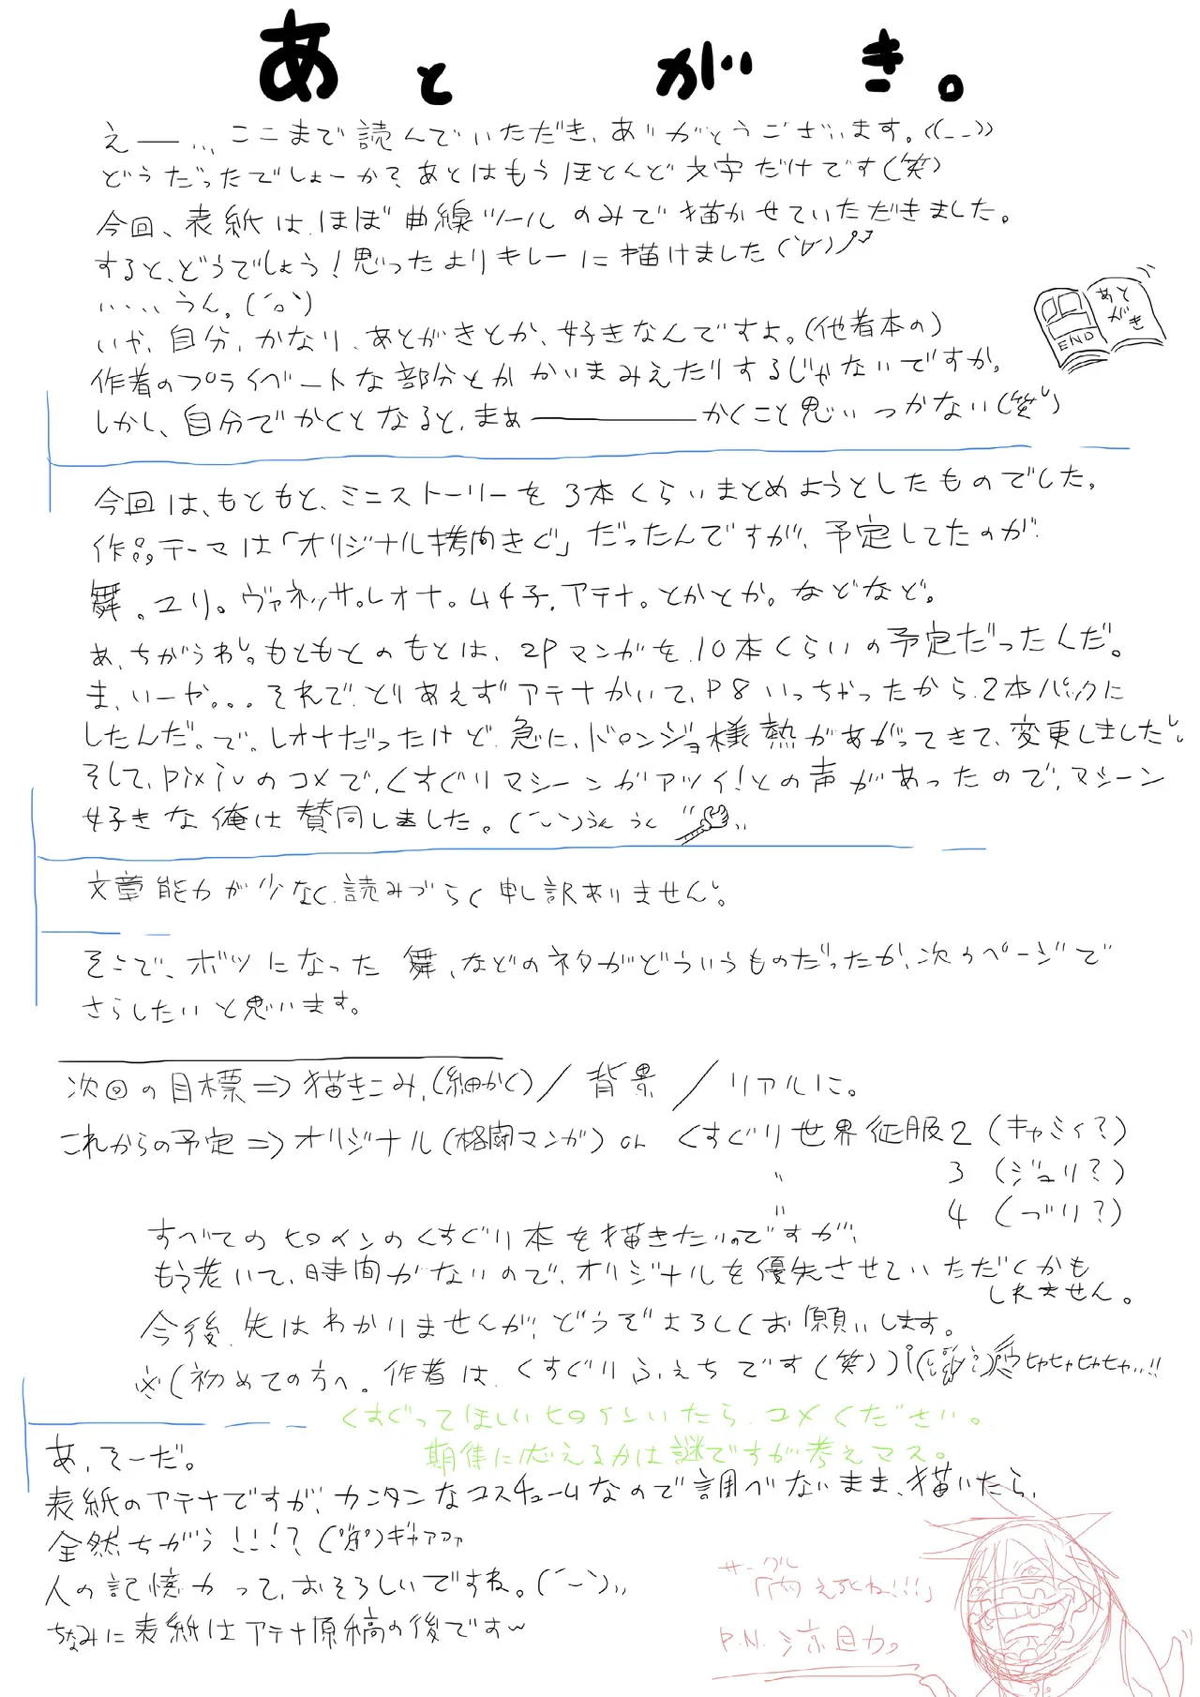 あとがき。
えー……ここまで読んでいただき、ありがとうございます。((_ _))
どうだったでしょーか？あとはもうほとんど文字だけです(笑)
今回、表紙は、ほぼ曲線ツールのみで描かせていただきました。
すると、どうでしょう！思ったよりキレーに描けました(´∀`)
……うん。(´o`)
いや、自分、かなり、あとがきとか、好きなんですよ。(他者本の)
作者のプライベートな部分とかかいまみえたりするじゃないですか。
しかし、自分でかくとなると、まぁ────かくこと思いつかない(笑)
あとがき
END
今回は、もともと、ミニストーリーを3本くらいまとめようとしたものでした。
作品テーマは「オリジナル拷問きぐ」だったんですが、予定してたのが
舞。ユリ。ヴァネッサ。レオナ。ムチ子。アテナ。とかとか。などなど。
あ、ちがうわ。もともとのもとは、2Pマンガを、10本くらいの予定だったんだ。
ま、いーや。。。それで、とりあえずアテナかいて、P8いっちゃったから、2本パックに
したんだ。で。レオナだったけど、急に、ドロンジョ様熱があがってきて、変更しました。
そして、pixivのコメで、くすぐりマシーンがアツイ！との声があったので、マシーン
好きな俺は賛同しました。(´ー`)うんうん
文章能力が少なく、読みづらく申し訳ありません。
そこで、ボツになった舞、などのネタがどういうものだったか、次のページで
さらしたいと思います。
次回の目標⇒描きこみ、(細かく)／背景／リアルに。
これからの予定⇒オリジナル(格闘マンガ) or くすぐり世界征服2(キャミィ？)
〃 3(ジュリ？)
〃 4(づり？)
すべてのヒロインのくすぐり本を描きたいのですが、
もう老いて、時間がないので、オリジナルを優先させていただくかも
しれません。
今後、先はわかりませんが、どうぞよろしくお願いします。
※(初めての方へ。作者は、くすぐりふぇちです(笑))ヒャヒャヒャヒャ…!!
くすぐってほしいヒロインいたら、コメください。
期待に応えるかは謎ですが考えマス。
あ、そーだ。
表紙のアテナですが、カンタンなコスチュームなので調べないまま、描いたら、
全然ちがう！！！？ギャアァァ
人の記憶力って、おそろしいですね。(´ー`)…
ちなみに表紙はアテナ原稿の後です〜
サークル
P.N.